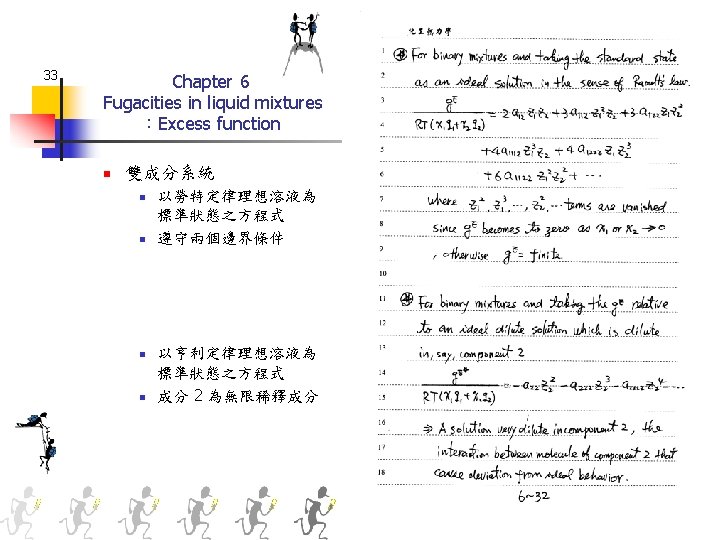 33
Chapter 6
Fugacities in liquid mixtures
：Excess function
雙成分系統
以勞特定律理想溶液為
標準狀態之方程式
遵守兩個邊界條件
以亨利定律理想溶液為
標準狀態之方程式
成分 2 為無限稀釋成分
化工熱力學
1 ※ For binary mixtures and taking the standard state
2 as an ideal solution in the sense of Raoult's law.
3 g^E
4 RT(x₁q₁+x₂q₂) = 2a₁₂z₁z₂+3a₁₁₂z₁²z₂+3a₁₂₂z₁z₂²
5 +4a₁₁₁₂z₁³z₂+4a₁₂₂₂z₁z₂³
6 +6a₁₁₂₂z₁²z₂²+⋯
7 where z₁², z₁³, ⋯, z₂²⋯terms are vanished
8 since g^E becomes to zero as x₁ or x₂ → 0
9 , otherwise g^E = finite
10
11 ※ For binary mixtures and taking the g^E relative
12 to an ideal dilute solution which is dilute
13 in, say, component 2
14 g^E*
15 RT(x₁q₁+x₂q₂) = -a₂₂z₂²-a₂₂₂z₂³-a₂₂₂₂z₂⁴⋯
16 ⇒ A solution very dilute in component 2, the
17 interaction between molecule of component 2 that
18 cause deviation from ideal behavior.
6~32